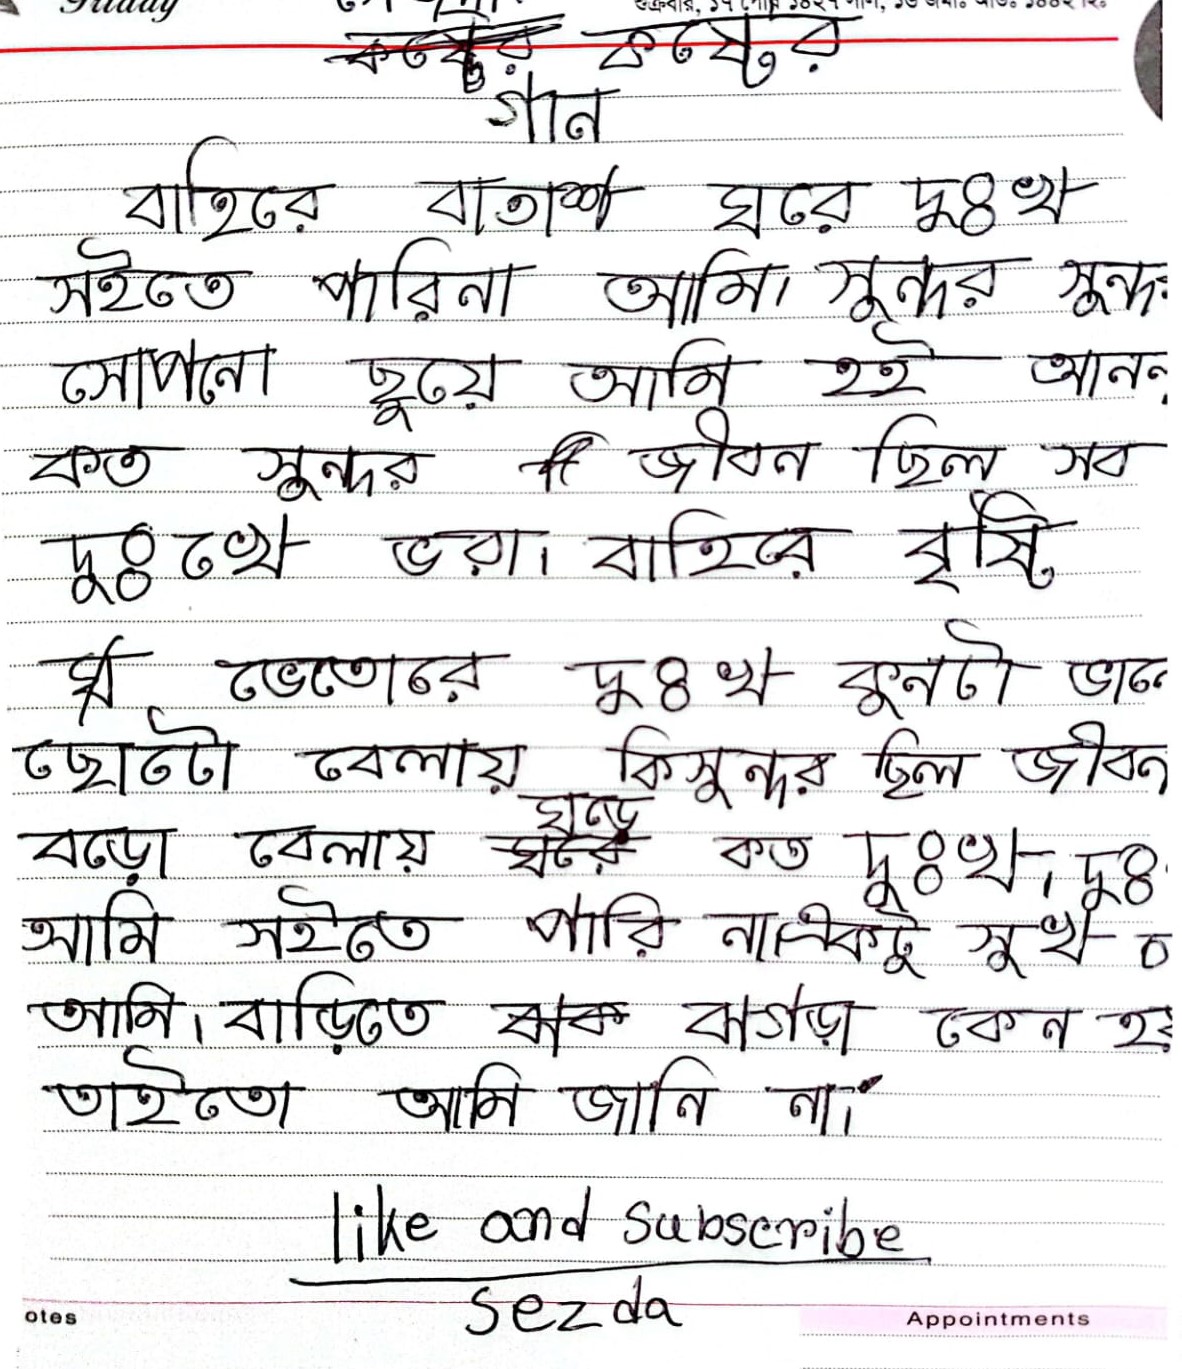 Friday
কষ্টের
গান
বাহিরে বাতাশ ঘরে দুঃখ
সইতে পারিনা আমি। সুন্দর সুন্দর
সোপনো ছুয়ে আমি হই
কত সুন্দর জীবন ছিল সব
দুঃখে ভরা। বাহিরে বৃষ্টি
ভেতোরে দুঃখ কুনটা
ছোটো বেলায় কিসুন্দর ছিল জীবন
বড়ো বেলায় ঘড়ে কত দুঃখ।
আমি সইতে পারি না একটু সুখ
আমি। বাড়িতে ঝগড়া কেন
তাইতো আমি জানি না।
like and subscribe
sezda
otes Appointments